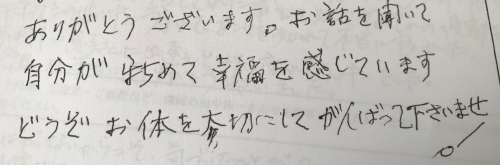 ありがとうございます。お話を聞いて
自分が 改めて 幸福を感じています
どうぞ お体を大切にして がんばって下さいませ
!